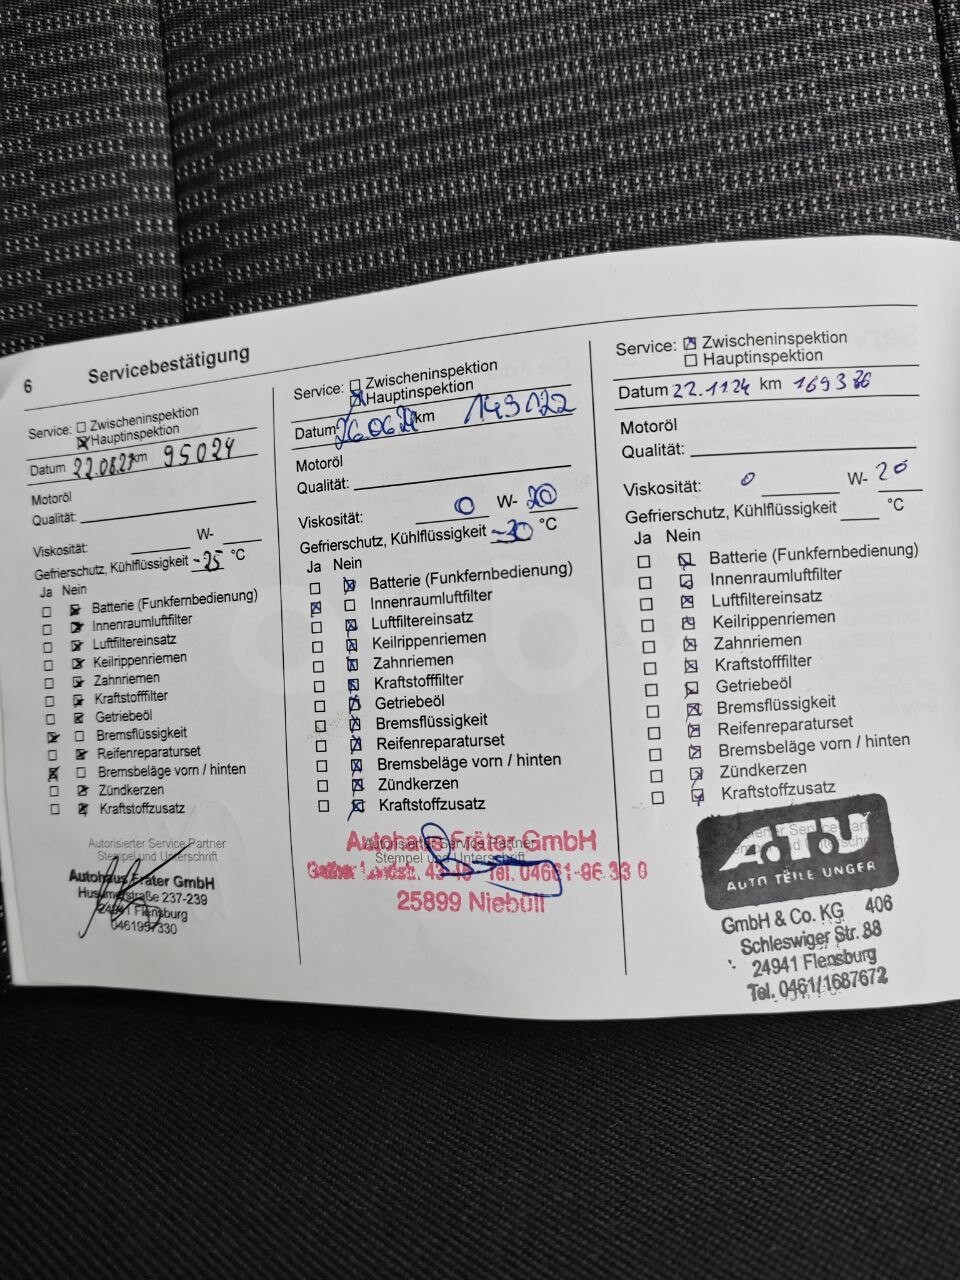 6 Servicebestätigung
Service: Zwischeninspektion
Hauptinspektion
Datum 22.08.23 km 95024
Motoröl
Qualität:
Viskosität: W-
Gefrierschutz, Kühlflüssigkeit -25 °C
Ja Nein
Batterie (Funkfernbedienung)
Innenraumluftfilter
Luftfiltereinsatz
Keilrippenriemen
Zahnriemen
Kraftstofffilter
Getriebeöl
Bremsflüssigkeit
Reifenreparaturset
Bremsbeläge vorn / hinten
Zündkerzen
Kraftstoffzusatz
Autorisierter Service Partner
Stempel und Unterschrift
Autohaus Fräter GmbH
Husumerstraße 237-239
24941 Flensburg
0461957330
Service: Zwischeninspektion
Hauptinspektion
Datum 26.06.24 km 149122
Motoröl
Qualität:
Viskosität: 0 W- 20
Gefrierschutz, Kühlflüssigkeit -30 °C
Ja Nein
Batterie (Funkfernbedienung)
Innenraumluftfilter
Luftfiltereinsatz
Keilrippenriemen
Zahnriemen
Kraftstofffilter
Getriebeöl
Bremsflüssigkeit
Reifenreparaturset
Bremsbeläge vorn / hinten
Zündkerzen
Kraftstoffzusatz
Autorisierter Service Partner
Stempel und Unterschrift
Autohaus Fräter GmbH
Tel. 04661-96 33 0
25899 Niebüll
Service: Zwischeninspektion
Hauptinspektion
Datum 22.11.24 km 169386
Motoröl
Qualität:
Viskosität: 0 W- 20
Gefrierschutz, Kühlflüssigkeit °C
Ja Nein
Batterie (Funkfernbedienung)
Innenraumluftfilter
Luftfiltereinsatz
Keilrippenriemen
Zahnriemen
Kraftstofffilter
Getriebeöl
Bremsflüssigkeit
Reifenreparaturset
Bremsbeläge vorn / hinten
Zündkerzen
Kraftstoffzusatz
A.T.U
AUTO TEILE UNGER
GmbH & Co. KG 406
Schleswiger Str. 88
24941 Flensburg
Tel. 0461/1687672